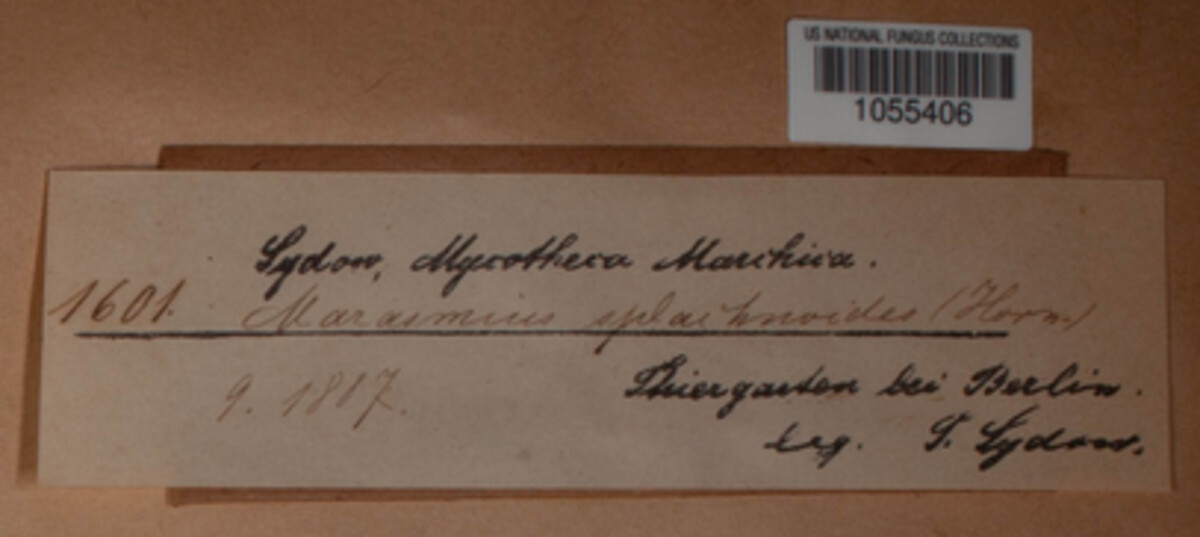 US NATIONAL FUNGUS COLLECTIONS
1055406
Sydow, Mycotheca Marchica.
1601. Marasmius splachnoides (Horn.)
9. 1887.
Thiergarten bei Berlin.
leg. P. Sydow.